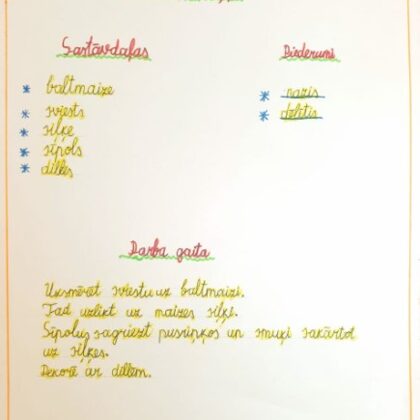 Sastāvdaļas
Piederumi
* baltmaize
* sviests
* siļķe
* sīpols
* dilles
* nazis
* dēlītis
Darba gaita
Uzsmērēt sviestu uz baltmaizi.
Tad uzlikt uz maizes siļķi.
Sīpolus sagriezt pusriņķos un smuki sakārtot
uz siļķes.
Dekorē ar dillēm.